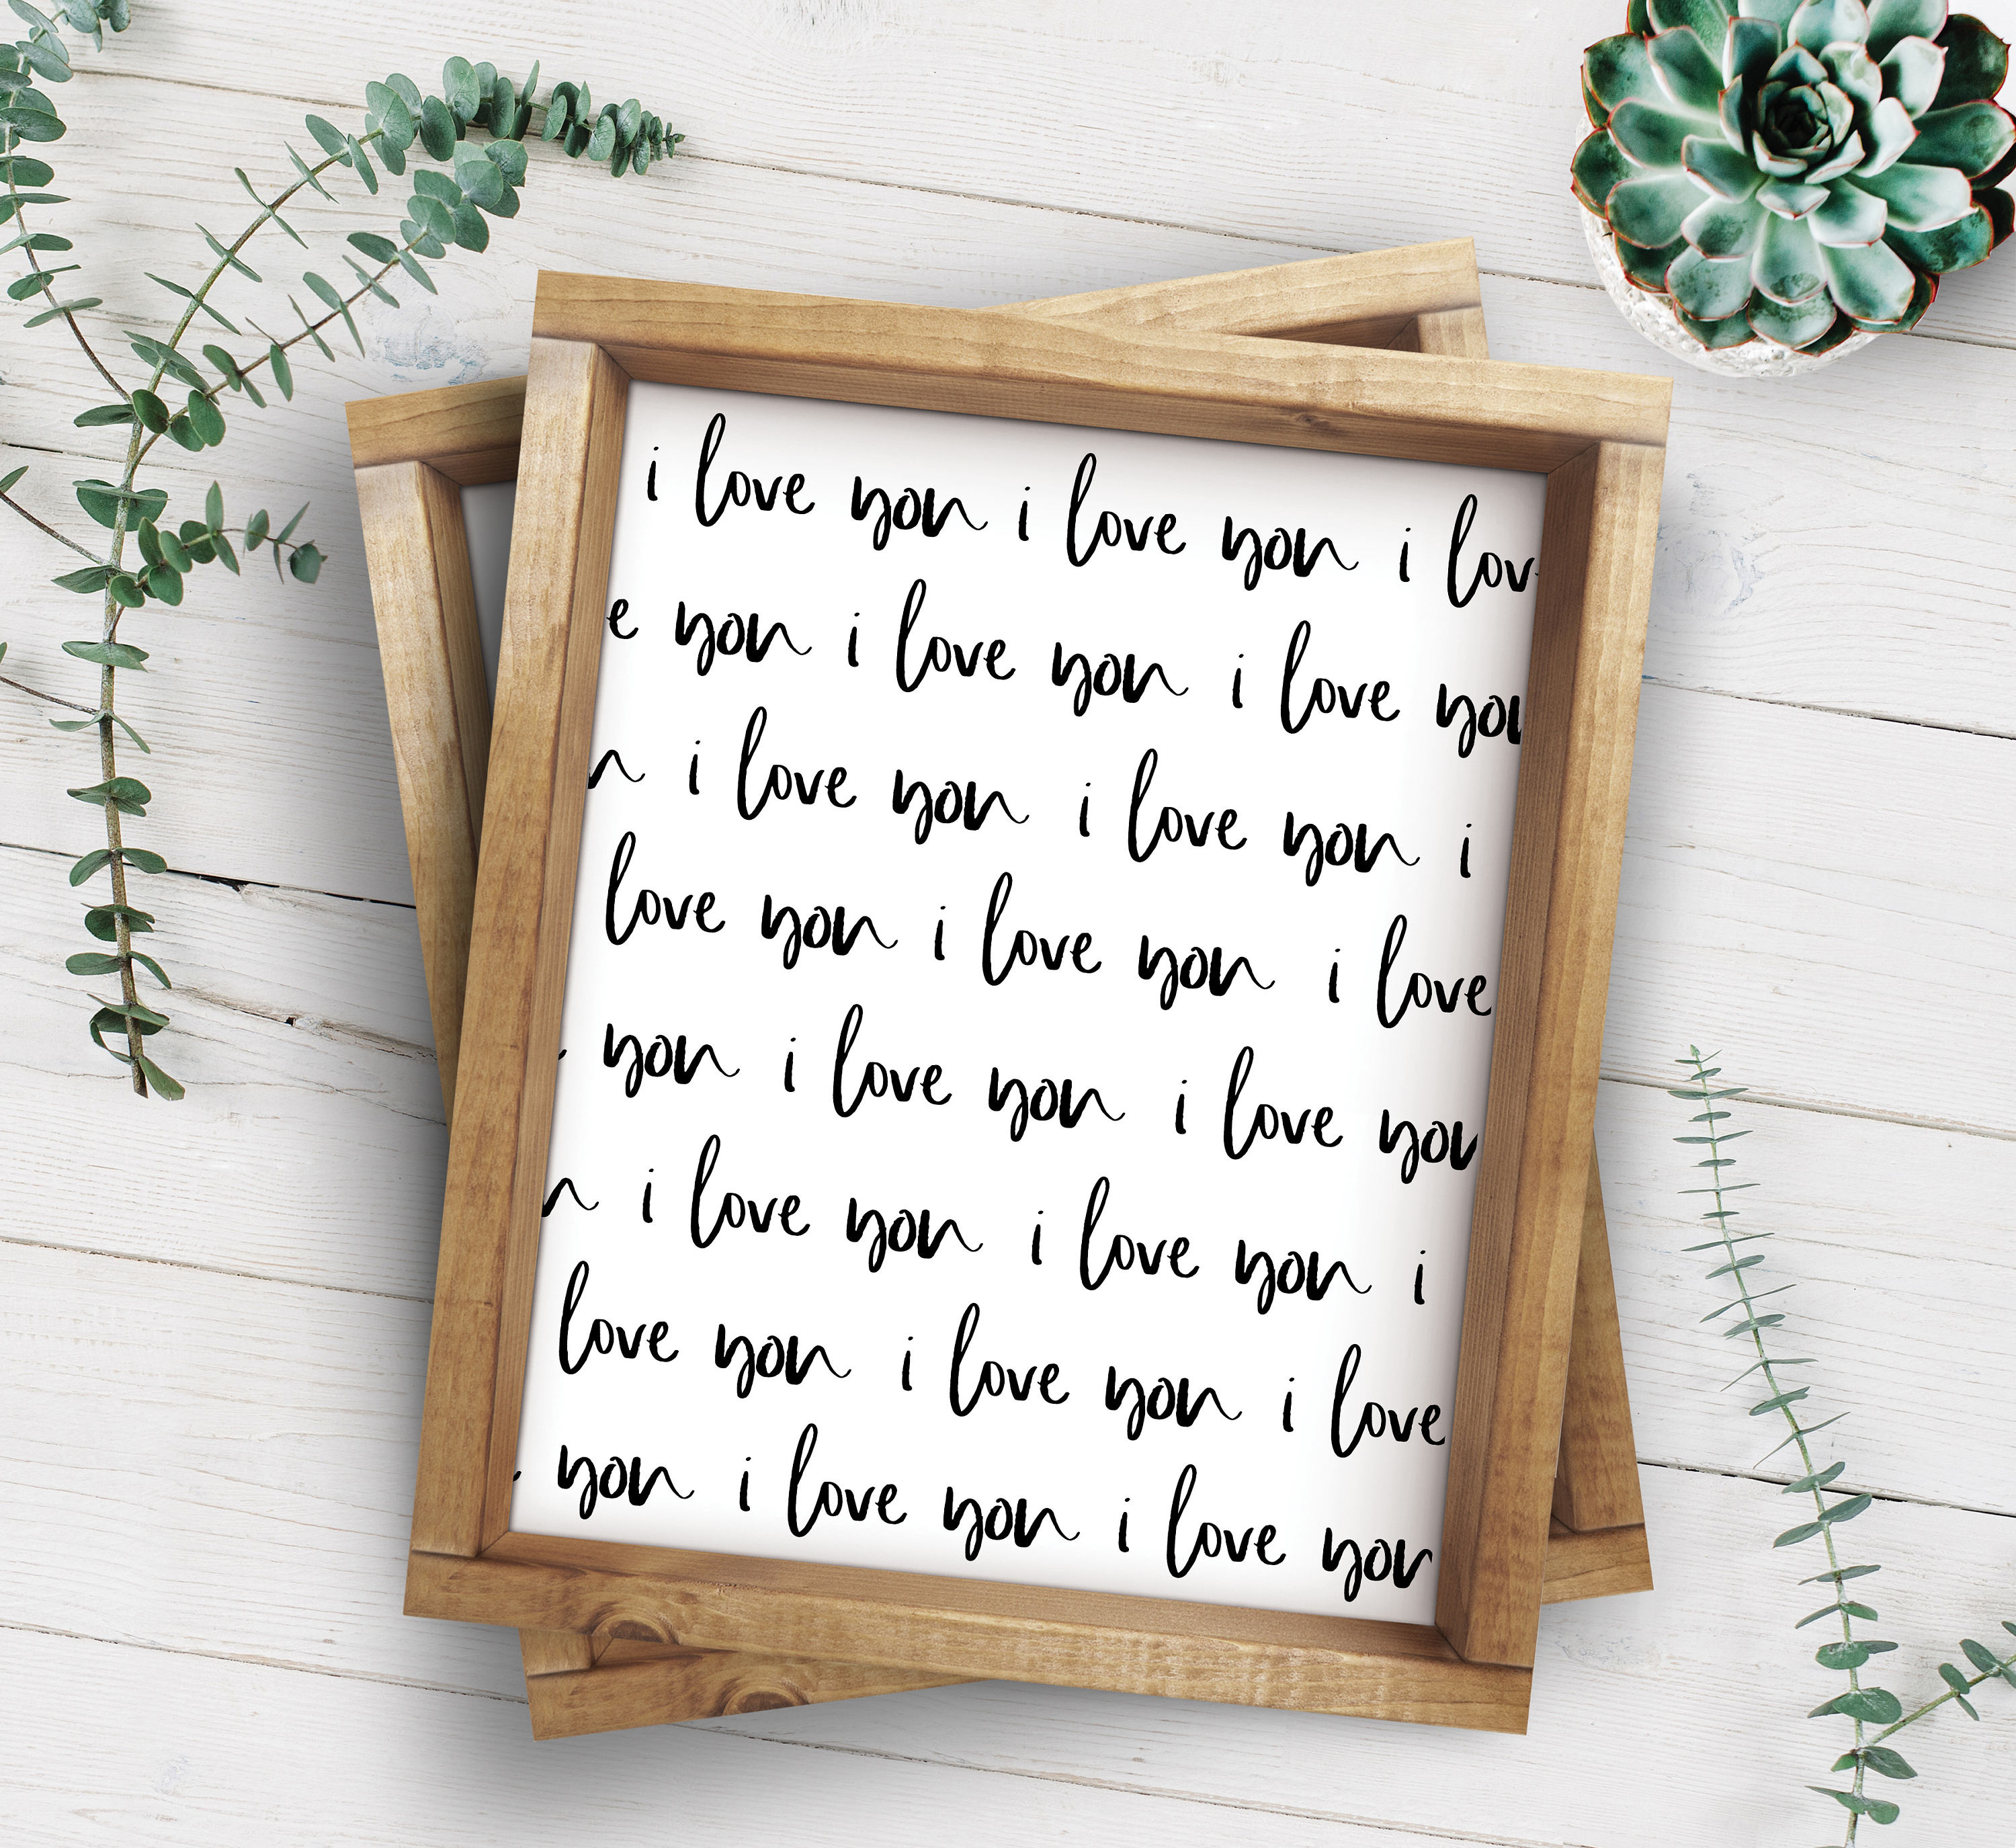 i love you i love you i lov
e you i love you i love you
n i love you i love you i
love you i love you i love
you i love you i love you
n i love you i love you i
love you i love you i love
you i love you i love you